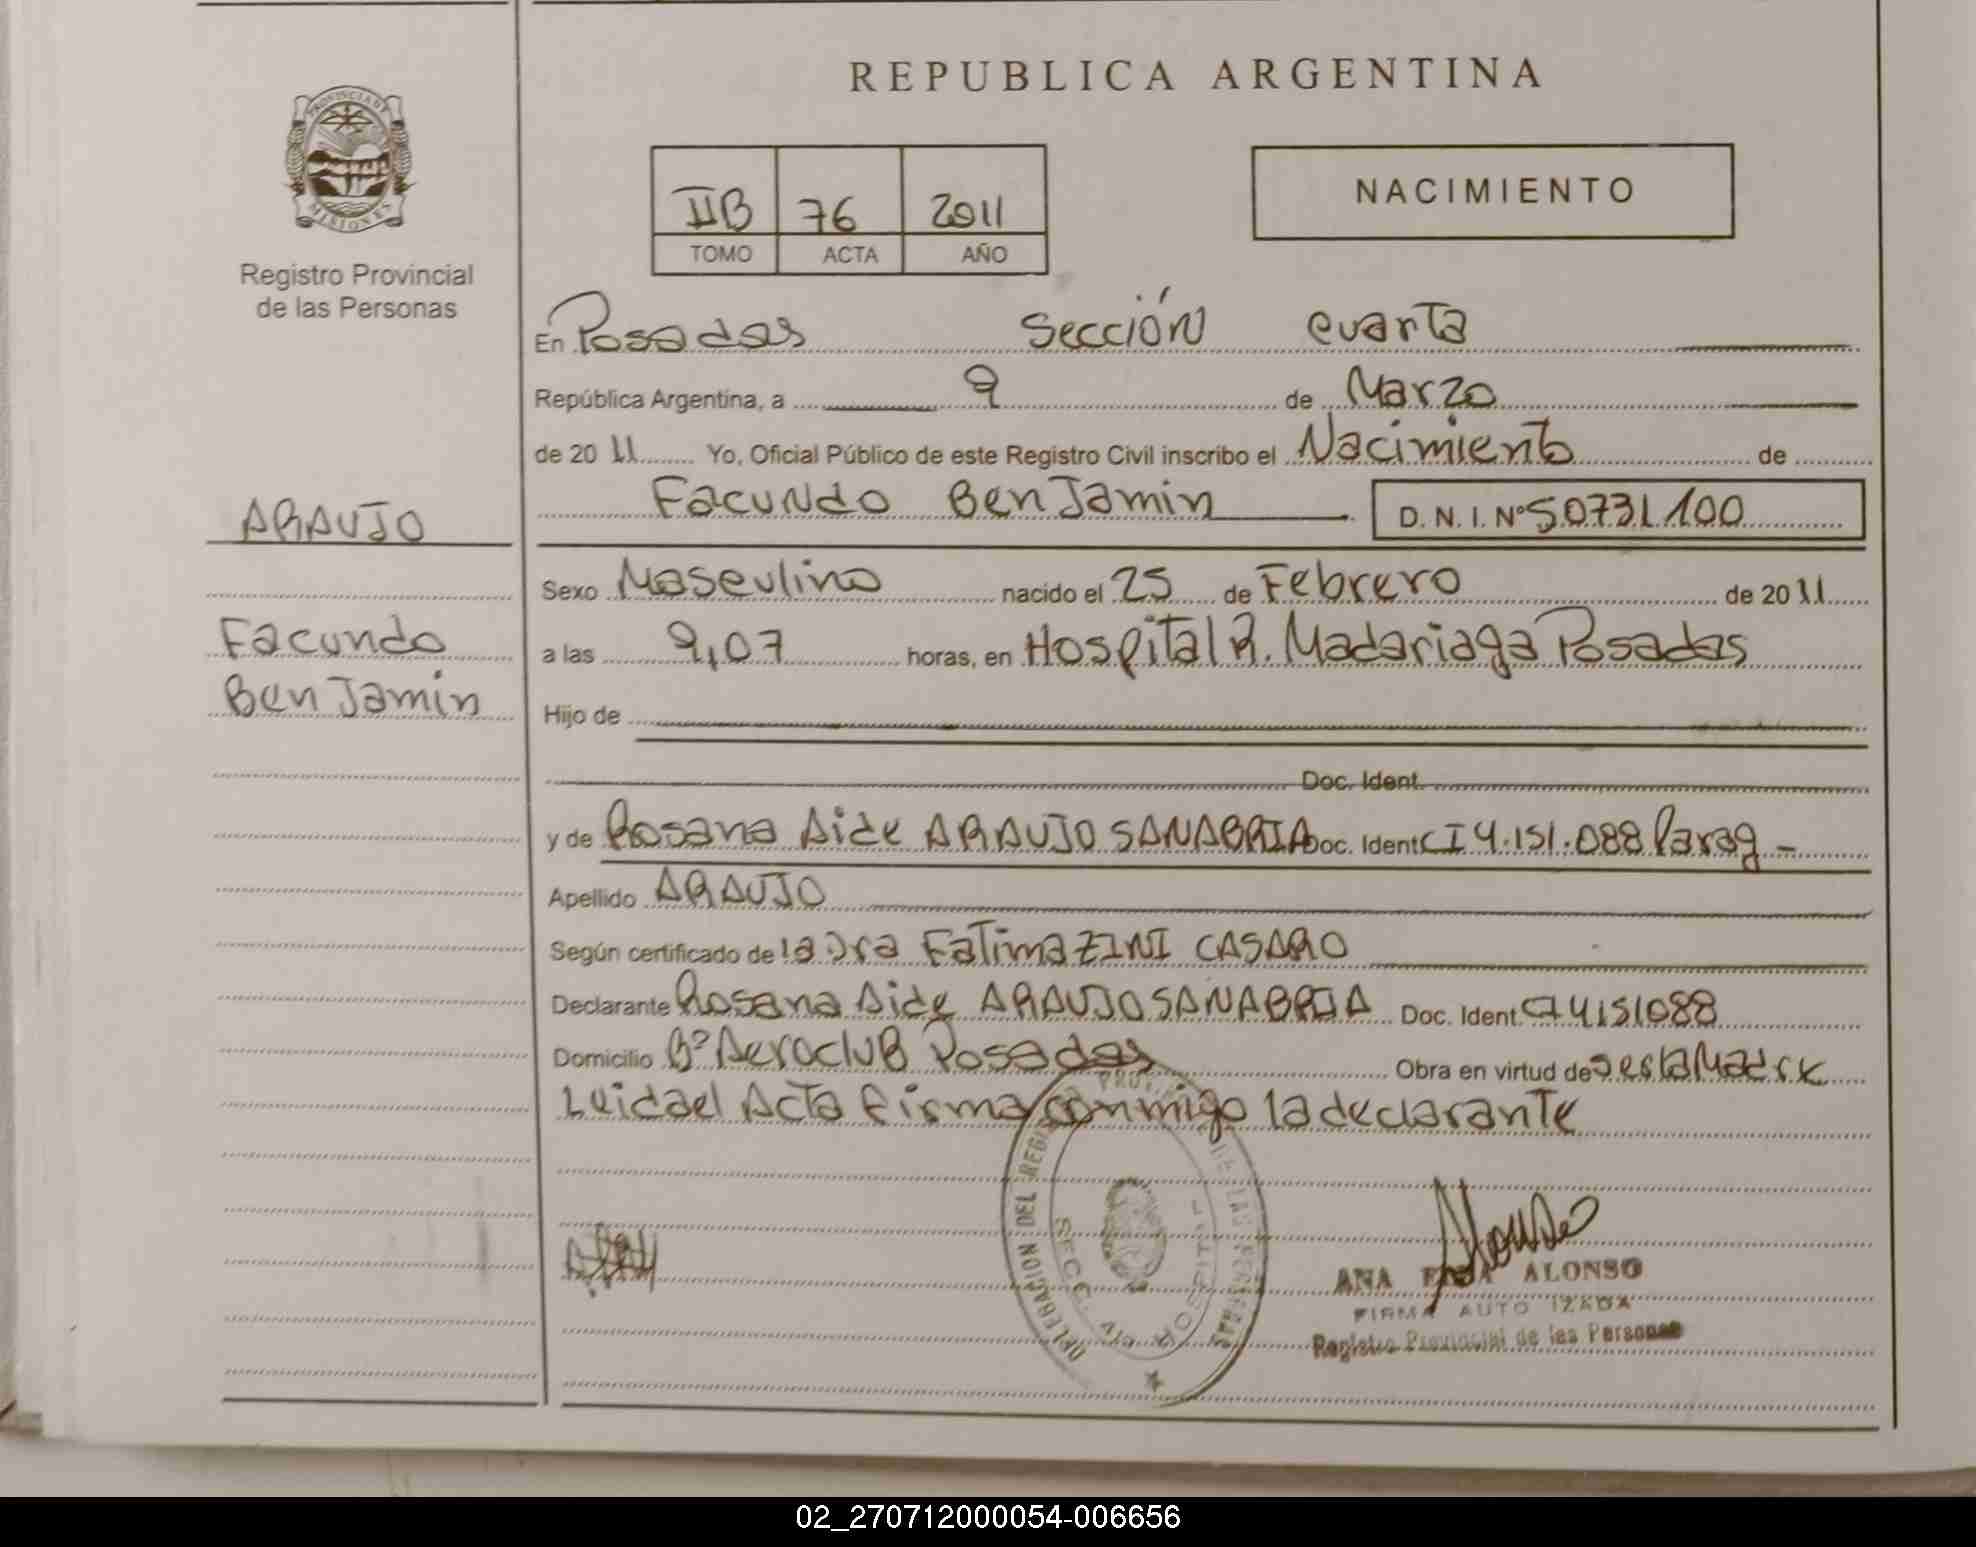 REPUBLICA ARGENTINA
PROVINCIA DE
MISIONES
Registro Provincial
de las Personas
IIB 76 2011
TOMO ACTA AÑO
NACIMIENTO
En Posadas Sección cuarta
República Argentina, a 9 de Marzo
de 2011 Yo, Oficial Público de este Registro Civil inscribo el Nacimiento de
Facundo BenJamin D.N.I. Nº 50731100
ARAUJO
Facundo
BenJamin
Sexo Masculino nacido el 25 de Febrero de 2011
a las 9,07 horas, en Hospital R. Madariaga Posadas
Hijo de
Doc. Ident.
y de Rosana Aide ARAUJO SANABRIA Doc. Ident CI 4.151.088 Parag -
Apellido ARAUJO
Según certificado de la Dra Fatima ZINI CASARO
Declarante Rosana Aide ARAUJO SANABRIA Doc. Ident. CI 4151088
Domicilio Bº Aeroclub Posadas Obra en virtud de ser la Madre
Leida el Acta firma conmigo la declarante
DELEGACION DEL REGISTRO PROV. DE LAS PERSONAS
SECC. 4ta HOSPITAL
ANA ALONSO
FIRMA AUTORIZADA
Registro Provincial de las Personas
02_270712000054-006656